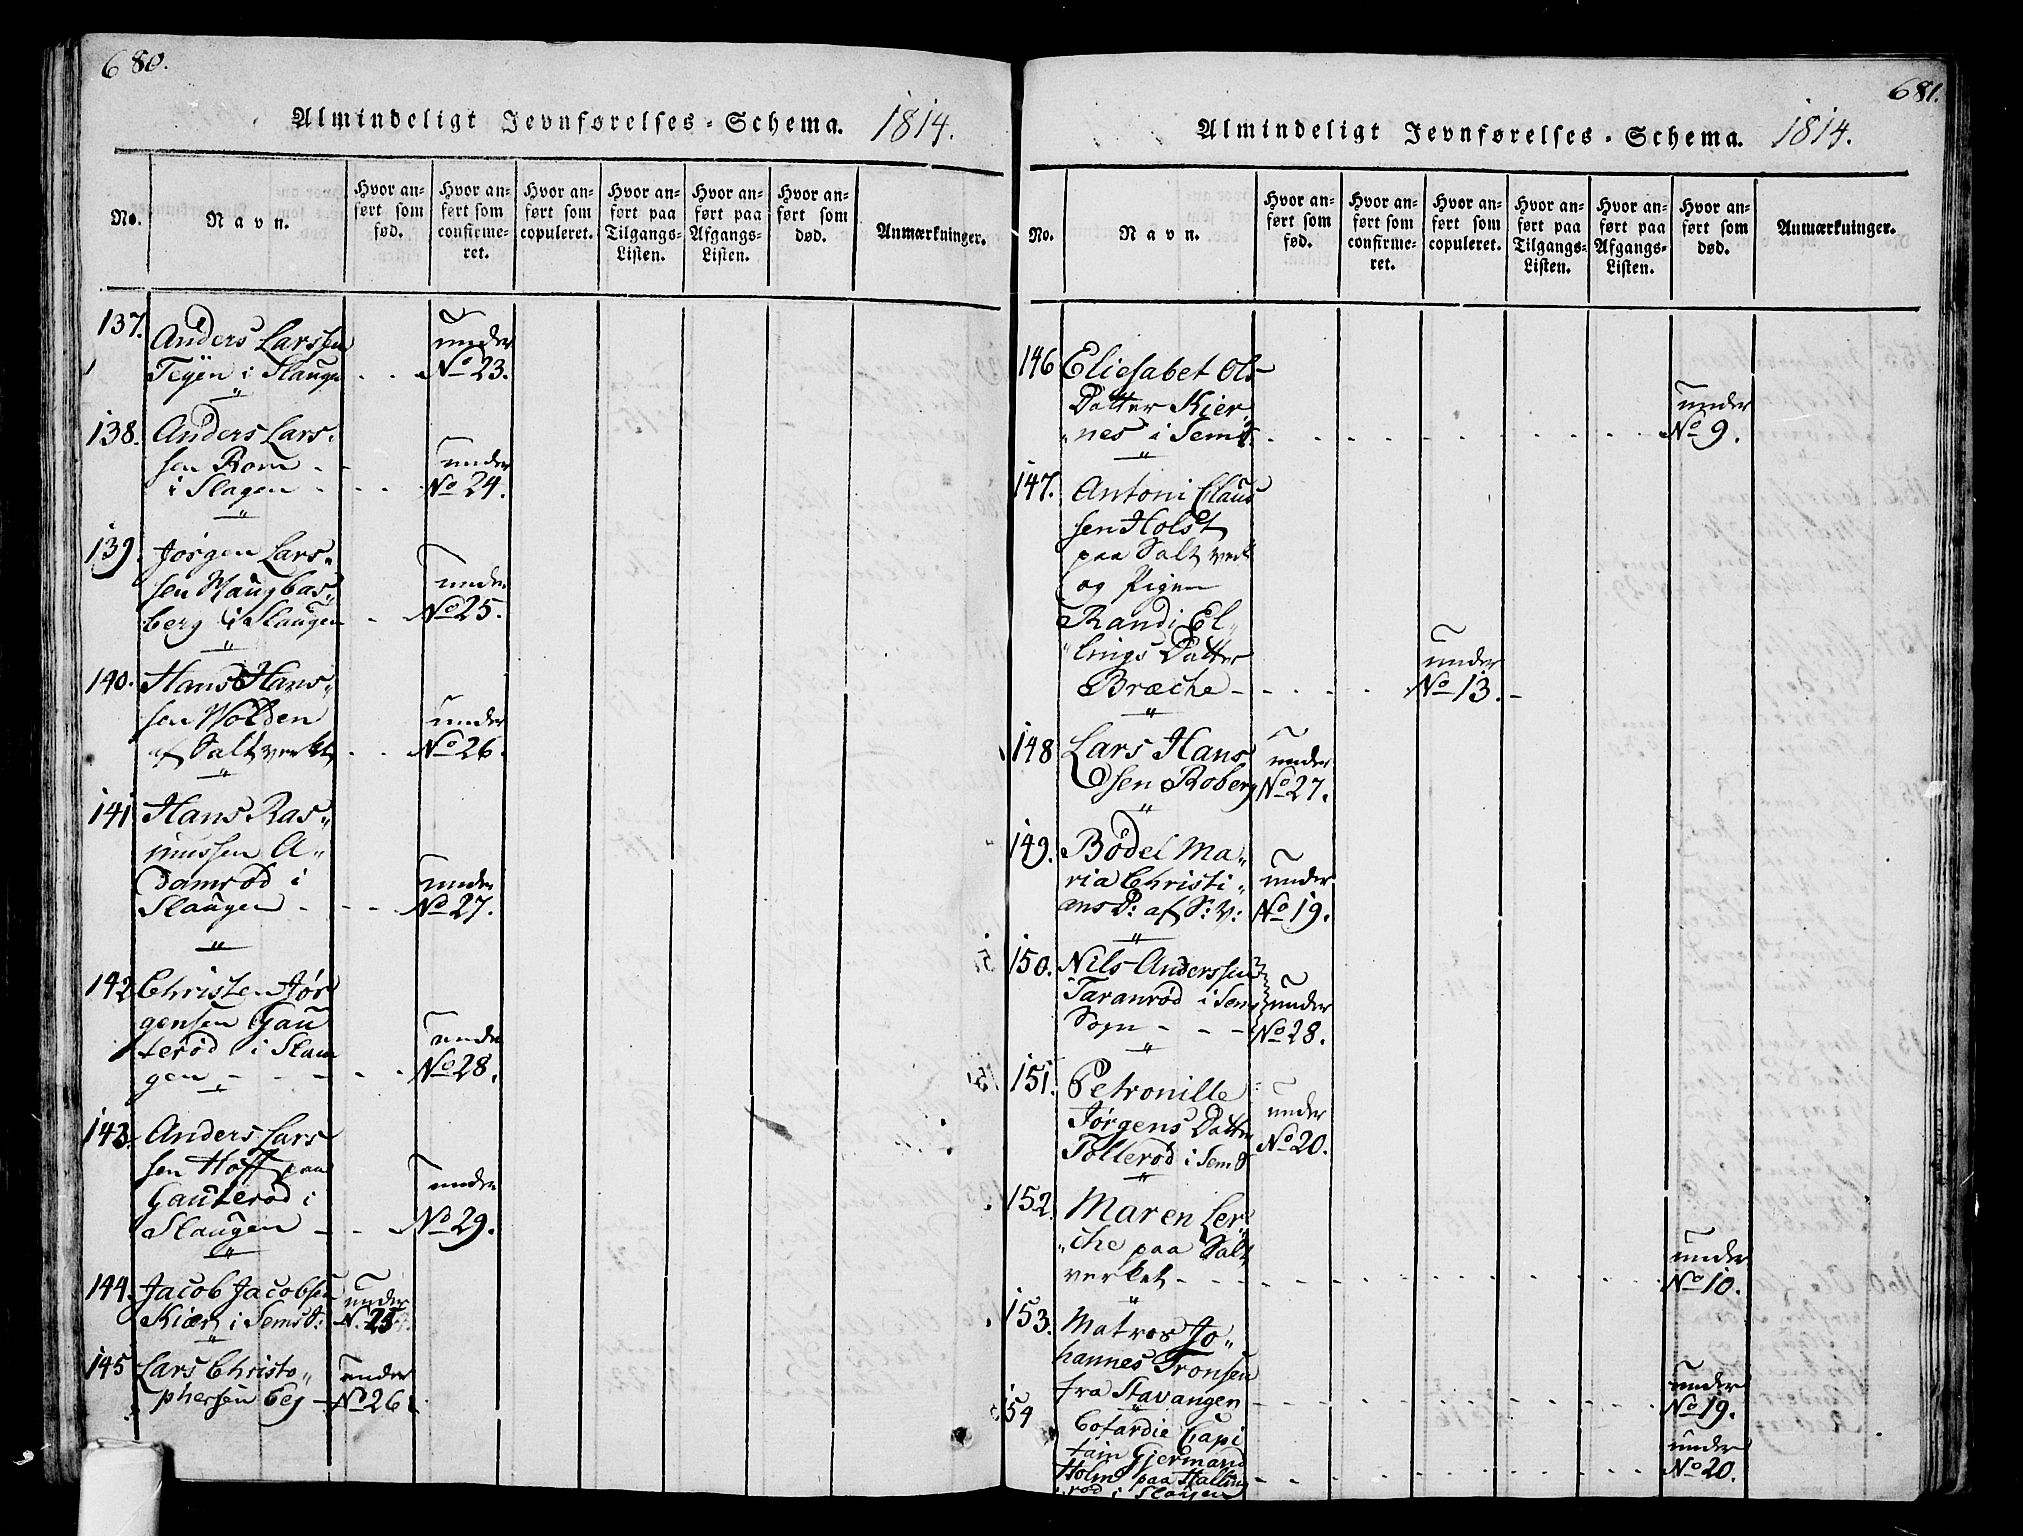 680.
Almindeligt Jevnførelses-Schema. 1814.
No.
Navn.
Hvor an-
ført som
fød.
Hvor an-
ført som
confirme-
ret.
Hvor an-
ført som
copuleret.
Hvor an-
ført paa
Tilgangs-
Listen.
Hvor an-
ført paa
Afgangs-
Listen.
Hvor an-
ført som
død.
Anmærkninger.
137. Anders Larssen under
Teÿen i Slaugen - - No 23.
138. Anders Lars-
sen Rom - - under
i Slagen - - - No 24.
139. Jørgen Lars-
sen Haugbas- under
berg i Slaugen - No 25.
140. Hans Hans-
sen Wolden under
af Saltverket - - No 26.
141 Hans Ras-
mussen A-
damrød i under
Slaugen - - - No 27.
142 Christen Jør
gensen Gau under
terød i Slau
gen - - - - No 28.
143. Anders Lars
sen Hoff paa
Gauterød i under
Slaugen - - No 29.
144. Jacob Jacobsen under
Kiær i Sems S: N. 25.
145 Lars Christo- under
phersen Eeg - No 26.
681.
Almindeligt Jevnførelses-Schema. 1814.
No.
Navn.
Hvor an-
ført som
fød.
Hvor an-
ført som
confirme-
ret.
Hvor an-
ført som
copuleret.
Hvor an-
ført paa
Tilgangs-
Listen.
Hvor an-
ført paa
Afgangs-
Listen.
Hvor an-
ført som
død.
Anmærkninger.
146 Eliesabet Ols-
Datter Kier- under
nes i Sem S. - - - No 9.
147. Antoni Claus
sen Holst
paa Saltverk
og Pigen
Randi El-
lings Datter under
Bræche - - - - No 13. -
148 Lars Hans under
sen Roberg No 27.
149. Bodel Ma-
ria Christi- under
ans D: af S: V: No 19.
150. Nils Anderssen
Taranrød i Sems under
Sogn - - - No 28.
151. Petronille
Jørgens Datter under
Tollerød i Sem S No 20.
152. Maren Ler-
che paa Salt under
verket - - - No 10.
153. Matros Jo-
hannes Tronsen under
fra Stavangen - - - No 19.
154 Cofardie Capi
tain Gjermand under
Holm paa Halling - - - No 20.
rød i Slaugen